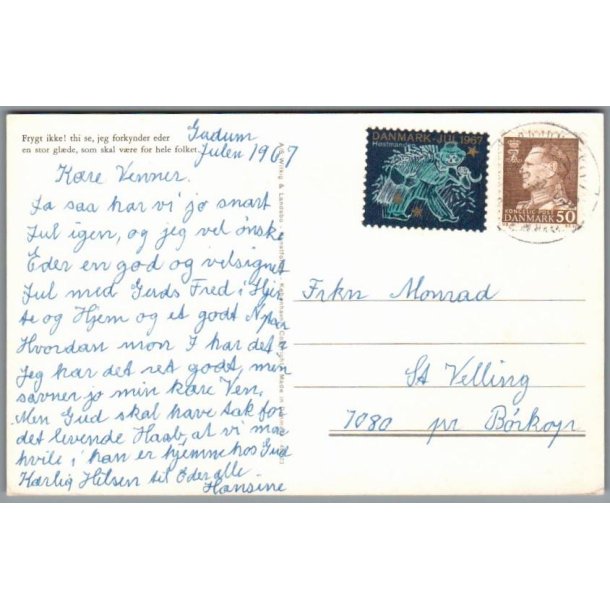 Frygt ikke! thi se, jeg forkynder eder
en stor glæde, som skal være for hele folket.
Gudum
Julen 1967
Kære Venner.
Ja saa har vi jo snart
Jul igen, og jeg vel ønske
Eder en god og velsignet
Jul med Guds Fred i Hjer
te og Hjem og et godt Nytaar
Hvordan mon I har det?
Jeg har det ret godt, men
savner jo min kære Ven,
Men Gud skal have tak for
det levende Haab, at vi maa
hvile i han er hjemme hos Gud
Kærlig Hilsen til Eder alle.
Hansine
DANMARK·JUL 1967
Høstmand
KONGELIG POST
DANMARK 50
Frkn Monrad
St Velling
7080 pr Börkop